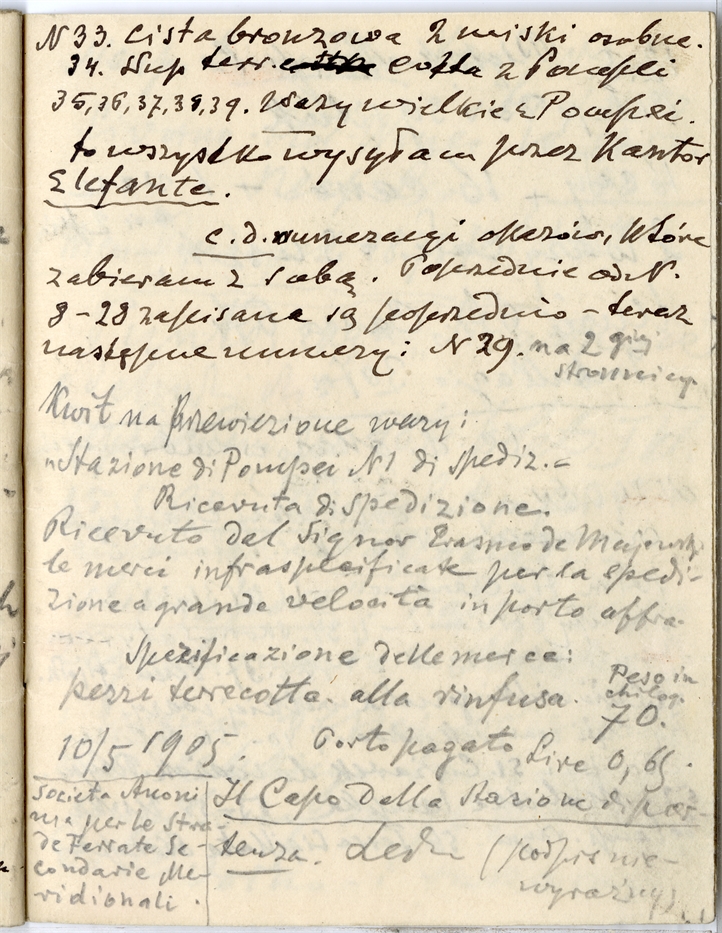 N 33. Cista bronzowa 2 miski osobne.
34. Słup terra cotta z Pompei
35, 36, 37, 38, 39. Wazy wielkie z Pompei.
to wszystko wysyłam przez Kantor
Elefante.
c. d. numeracyi okazów, które
zabieram z sobą. Poprzednie od N.
8 - 28 zapisane są poprzednio - teraz
następne numery: N 29. na 2 giej
stronnicy.
Kwit na przewiezione wazy:
"Stazione di Pompei N 1 di spediz. -
Ricevuta di spedizione.
Ricevuto dal Signor Erasmo de Majewski
le merci infraspecificate per la spedi-
zione a grande velocità in porto affra.
Spezificazione delle merce:
pezzi terrecotta. alla rinfusa. Peso in
chilog.
70.
10/5 1905. Porto pagato Lire 0,65.
Societa Anoni
ma per le Stra-
de Ferrate Se-
condarie Me-
ridionali.
Il Capo della Stazione di par-
tenza. (podpis nie-
wyraźny)